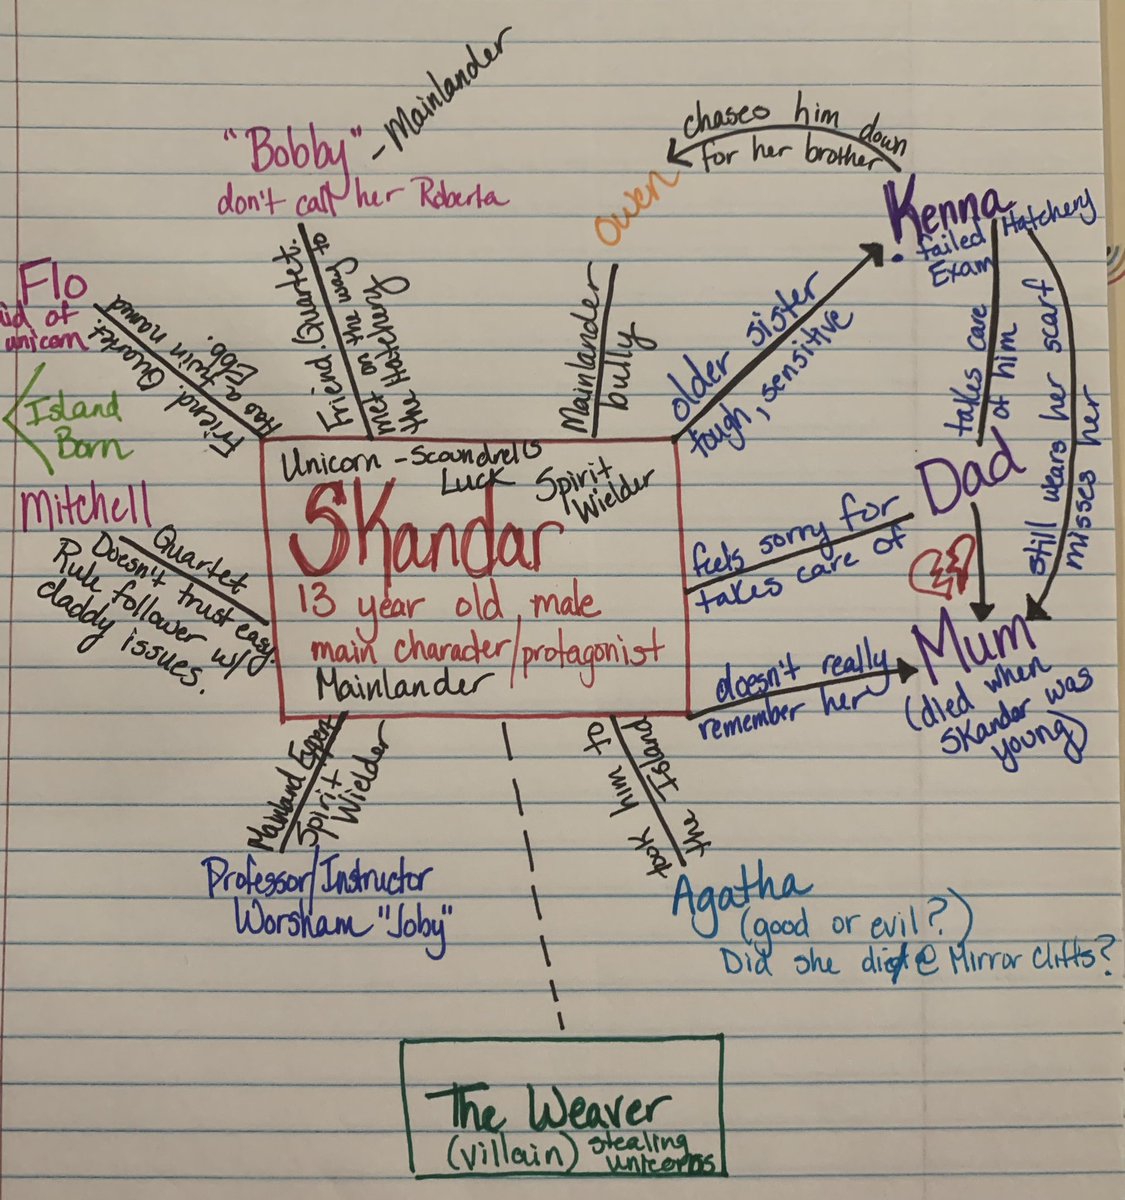 "Bobby" - Mainlander
don't call her Roberta
Friend. Quartet.
met on the way to
the Hatchery
chases him down
for her brother
Owen
Mainlander
bully
Kenna
• failed Hatchery
Exam
older sister
tough, sensitive
takes care
of him
still wears her scarf
misses her
Flo
of
unicorn
Friend. Quartet
Has a twin named
Ebb.
Island
Born
Mitchell
Quartet
Doesn't trust easy.
Rule follower w/
daddy issues.
Unicorn - Scoundrel's
Luck
Spirit
Wielder
Skandar
13 year old male
main character/protagonist
Mainlander
Dad
feels sorry for
takes care of
Mum
(died when
Skandar was
young)
doesn't really
remember her
Mainland Expert
Spirit
Wielder
Professor/Instructor
Worsham "Joby"
took him to
the Island
Agatha
(good or evil?)
Did she die @ Mirror Cliffs?
The Weaver
(villain) stealing
unicorns